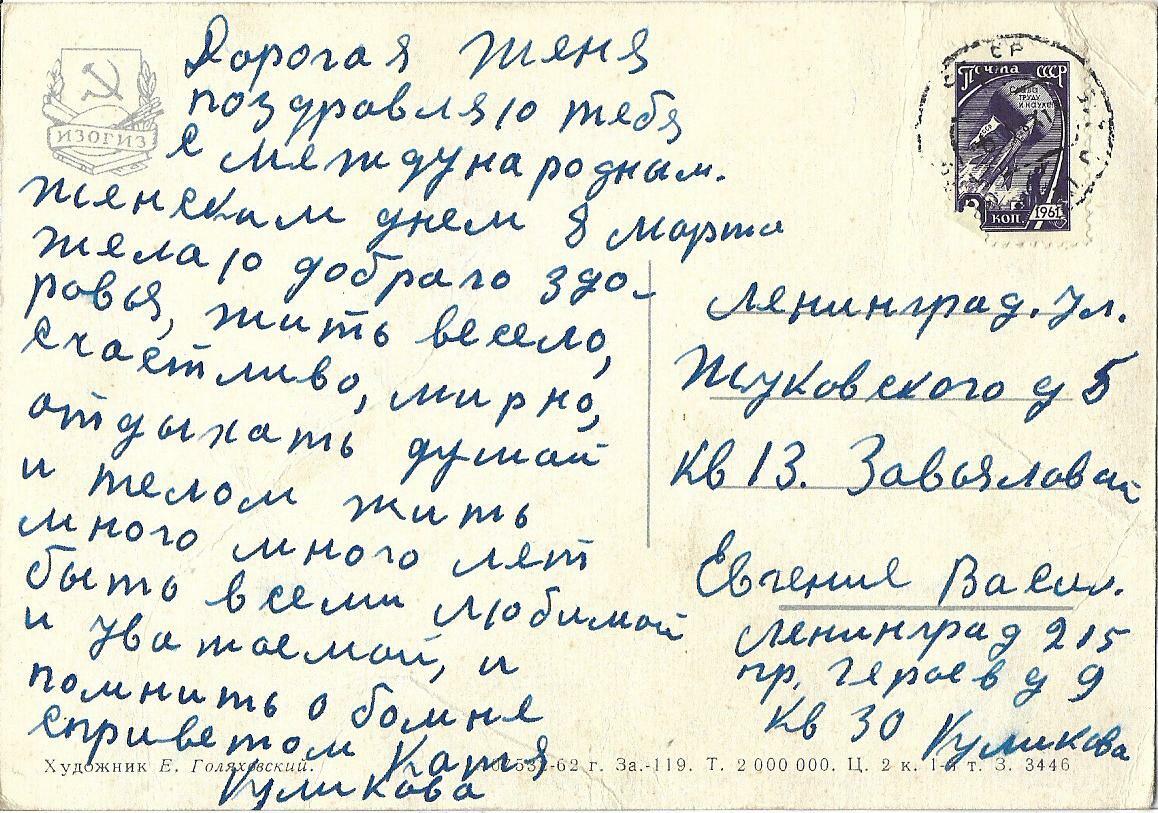 Дорогая Женя
поздравляю тебя
с международным.
женскам днем 8 марта
желаю доброго здо-
ровья, жить весело,
счастливо, мирно,
отдыхать душой
и телом жить
много много лет
быть всеми любимой
и уважаемой, и
помнить обомне
сприветом Катя
Куликова
ИЗОГИЗ
Художник Е. Голяховский.
62 г. За.-119. Т. 2 000 000. Ц. 2 к. 1-й т. З. 3446
ПОЧТА СССР
СЛАВА
ТРУДУ
И НАУКЕ
КОП. 1961
Ленинград. ул.
Жуковского д 5
кв 13. Завьяловой
Евгение Васил.
Ленинград 215
пр. Героев д 9
кв 30 Куликова